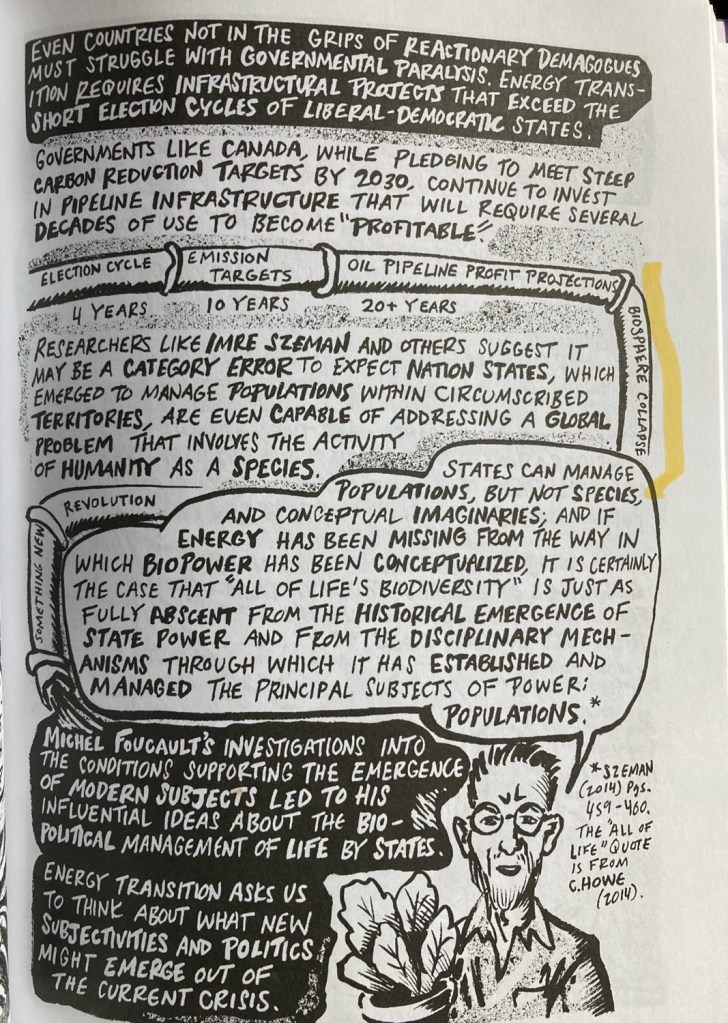 EVEN COUNTRIES NOT IN THE GRIPS OF REACTIONARY DEMAGOGUES
MUST STRUGGLE WITH GOVERNMENTAL PARALYSIS. ENERGY TRANS-
ITION REQUIRES INFRASTRUCTURAL PROJECTS THAT EXCEED THE
SHORT ELECTION CYCLES OF LIBERAL-DEMOCRATIC STATES.
GOVERNMENTS LIKE CANADA, WHILE PLEDGING TO MEET STEEP
CARBON REDUCTION TARGETS BY 2030, CONTINUE TO INVEST
IN PIPELINE INFRASTRUCTURE THAT WILL REQUIRE SEVERAL
DECADES OF USE TO BECOME "PROFITABLE".
ELECTION CYCLE
EMISSION
TARGETS
OIL PIPELINE PROFIT PROJECTIONS
BIOSPHERE COLLAPSE
4 YEARS
10 YEARS
20+ YEARS
RESEARCHERS LIKE IMRE SZEMAN AND OTHERS SUGGEST IT
MAY BE A CATEGORY ERROR TO EXPECT NATION STATES, WHICH
EMERGED TO MANAGE POPULATIONS WITHIN CIRCUMSCRIBED
TERRITORIES, ARE EVEN CAPABLE OF ADDRESSING A GLOBAL
PROBLEM THAT INVOLVES THE ACTIVITY
OF HUMANITY AS A SPECIES.
REVOLUTION
SOMETHING NEW
STATES CAN MANAGE
POPULATIONS, BUT NOT SPECIES,
AND CONCEPTUAL IMAGINARIES; AND IF
ENERGY HAS BEEN MISSING FROM THE WAY IN
WHICH BIOPOWER HAS BEEN CONCEPTUALIZED, IT IS CERTAINLY
THE CASE THAT "ALL OF LIFE'S BIODIVERSITY" IS JUST AS
FULLY ABSCENT FROM THE HISTORICAL EMERGENCE OF
STATE POWER AND FROM THE DISCIPLINARY MECH-
ANISMS THROUGH WHICH IT HAS ESTABLISHED AND
MANAGED THE PRINCIPAL SUBJECTS OF POWER:
POPULATIONS.*
MICHEL FOUCAULT'S INVESTIGATIONS INTO
THE CONDITIONS SUPPORTING THE EMERGENCE
OF MODERN SUBJECTS LED TO HIS
INFLUENTIAL IDEAS ABOUT THE BIO-
POLITICAL MANAGEMENT OF LIFE BY STATES.
ENERGY TRANSITION ASKS US
TO THINK ABOUT WHAT NEW
SUBJECTIVITIES AND POLITICS
MIGHT EMERGE OUT OF
THE CURRENT CRISIS.
*SZEMAN
(2014) Pgs.
459-460.
THE "ALL OF
LIFE" QUOTE
IS FROM
C.HOWE
(2014).